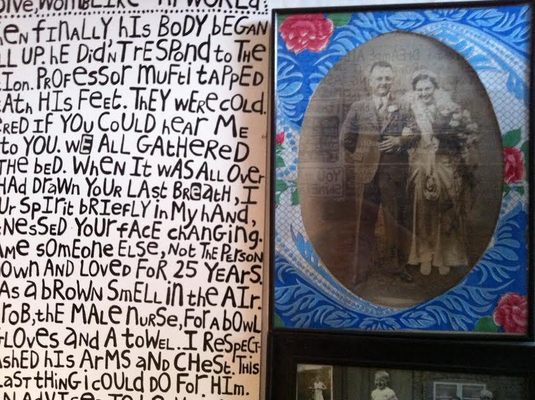 WOMBLIKE
EN FINALLY HIS BODY BEGAN
LL UP. HE DIDN'T RESPOND to THE
ION. PROFESSOR MUFTI TAPPED
EATH HIS FEET. THEY WERE COLD.
RED IF YOU COULD HEAR ME
to YOU. WE ALL GATHERED
THE BED. WHEN It WAS ALL OVER
HAD DRAWN YOUR LAST BREATH, I
UR SPIRIT BRIEFLY IN MY HAND,
NESSED YOUR FACE CHANGING.
AME SOMEONE ELSE, NOT THE PERSON
OWN AND LOVED FOR 25 YEARS
AS a BROWN SMELL in the AIR
ROB, tHE MALE NURSE, FOR A BOWL
GLOVES AND A toWEL. I RESPECT-
ASHED HIS ARMS AND CHESt. THIS
LAST THING i COULD DO FOR HIM.